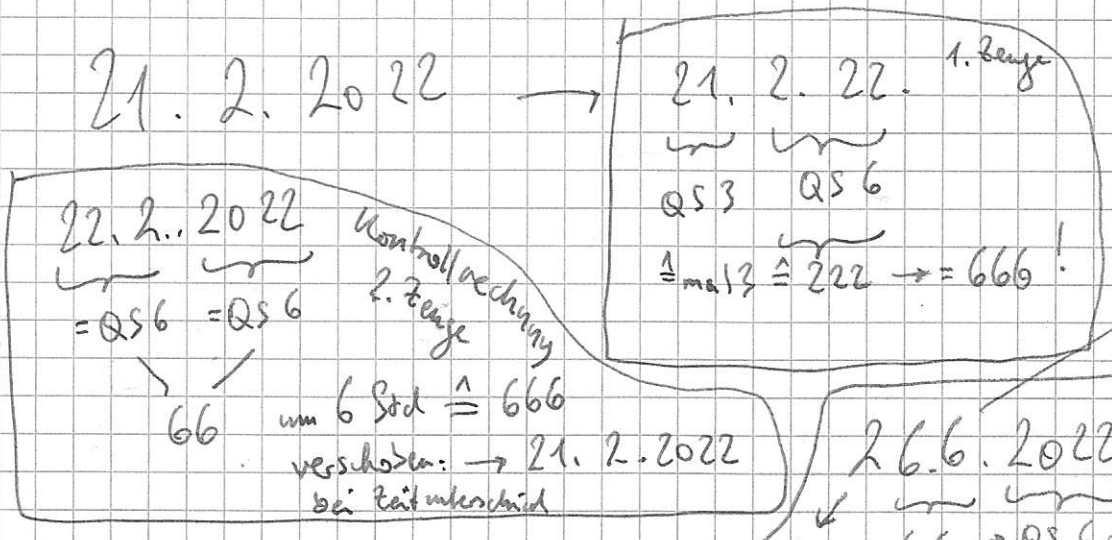 21. 2. 2022 →
21. 2. 22. 1. Zeuge
QS 3 QS 6
≙ mal 3 ≙ 222 → = 666 !
22. 2.. 2022 Kontrollrechnung
2. Zeuge
= QS 6 = QS 6
66 um 6 Std ≙ 666
verschoben: → 21. 2. 2022
bei Zeitunterschied
26.6. 2022